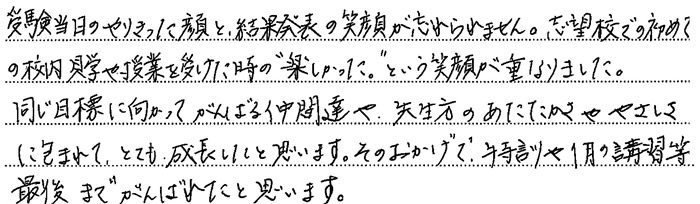 受験当日のやりきった顔と、結果発表の笑顔が忘れられません。志望校での初めて
の校内見学や授業を受けた時の“楽しかった。”という笑顔が重なりました。
同じ目標に向かってがんばる仲間達や、先生方のあたたかさややさしさ
に包まれて、とても成長したと思います。そのおかげで、午特訓や1月の講習等
最後までがんばれたと思います。